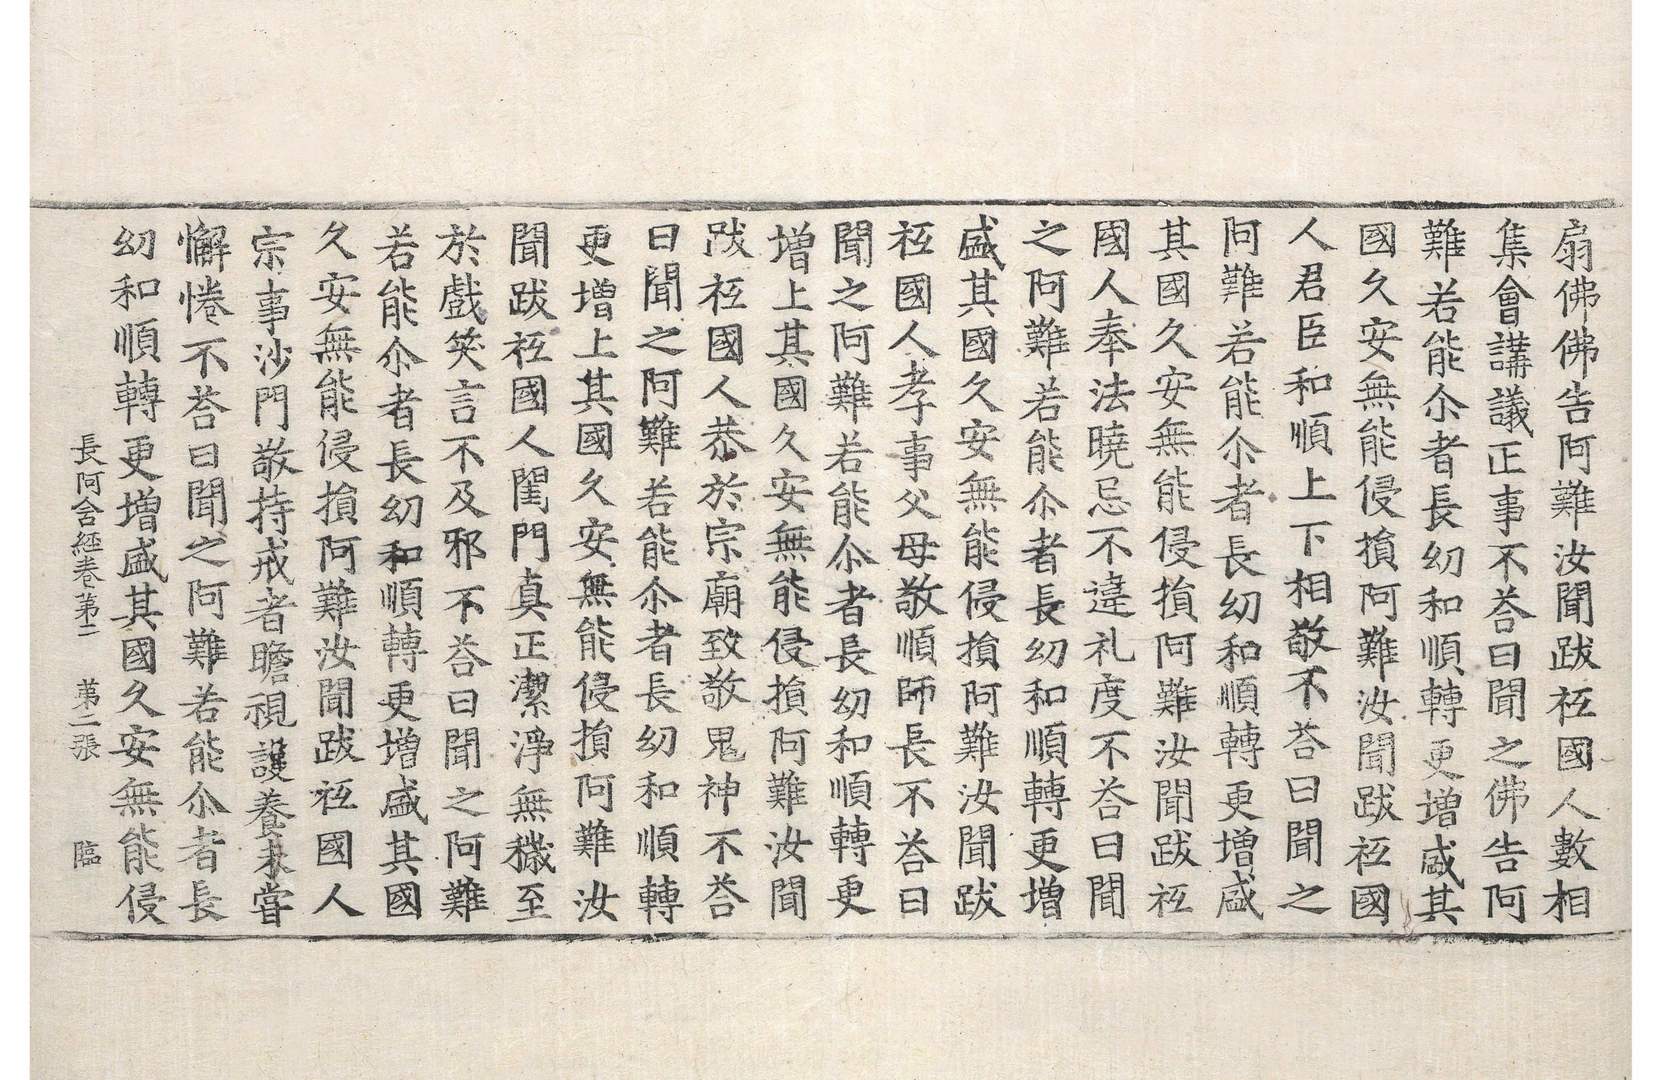 扇佛佛告阿難汝聞跋祇國人數相
集會講議正事不荅曰聞之佛告阿
難若能尒者長幼和順轉更增盛其
國久安無能侵損阿難汝聞跋祇國
人君臣和順上下相敬不荅曰聞之
阿難若能尒者長幼和順轉更增盛
其國久安無能侵損阿難汝聞跋祇
國人奉法曉忌不違礼度不荅曰聞
之阿難若能尒者長幼和順轉更增
盛其國久安無能侵損阿難汝聞跋
祇國人孝事父母敬順師長不荅曰
聞之阿難若能尒者長幼和順轉更
增上其國久安無能侵損阿難汝聞
跋祇國人恭於宗廟致敬鬼神不荅
曰聞之阿難若能尒者長幼和順轉
更增上其國久安無能侵損阿難汝
聞跋祇國人閨門真正潔淨無穢至
於戲笑言不及邪不荅曰聞之阿難
若能尒者長幼和順轉更增盛其國
久安無能侵損阿難汝聞跋祇國人
宗事沙門敬持戒者瞻視護養未嘗
懈惓不荅曰聞之阿難若能尒者長
幼和順轉更增盛其國久安無能侵
長阿含經卷第二　第二張　臨